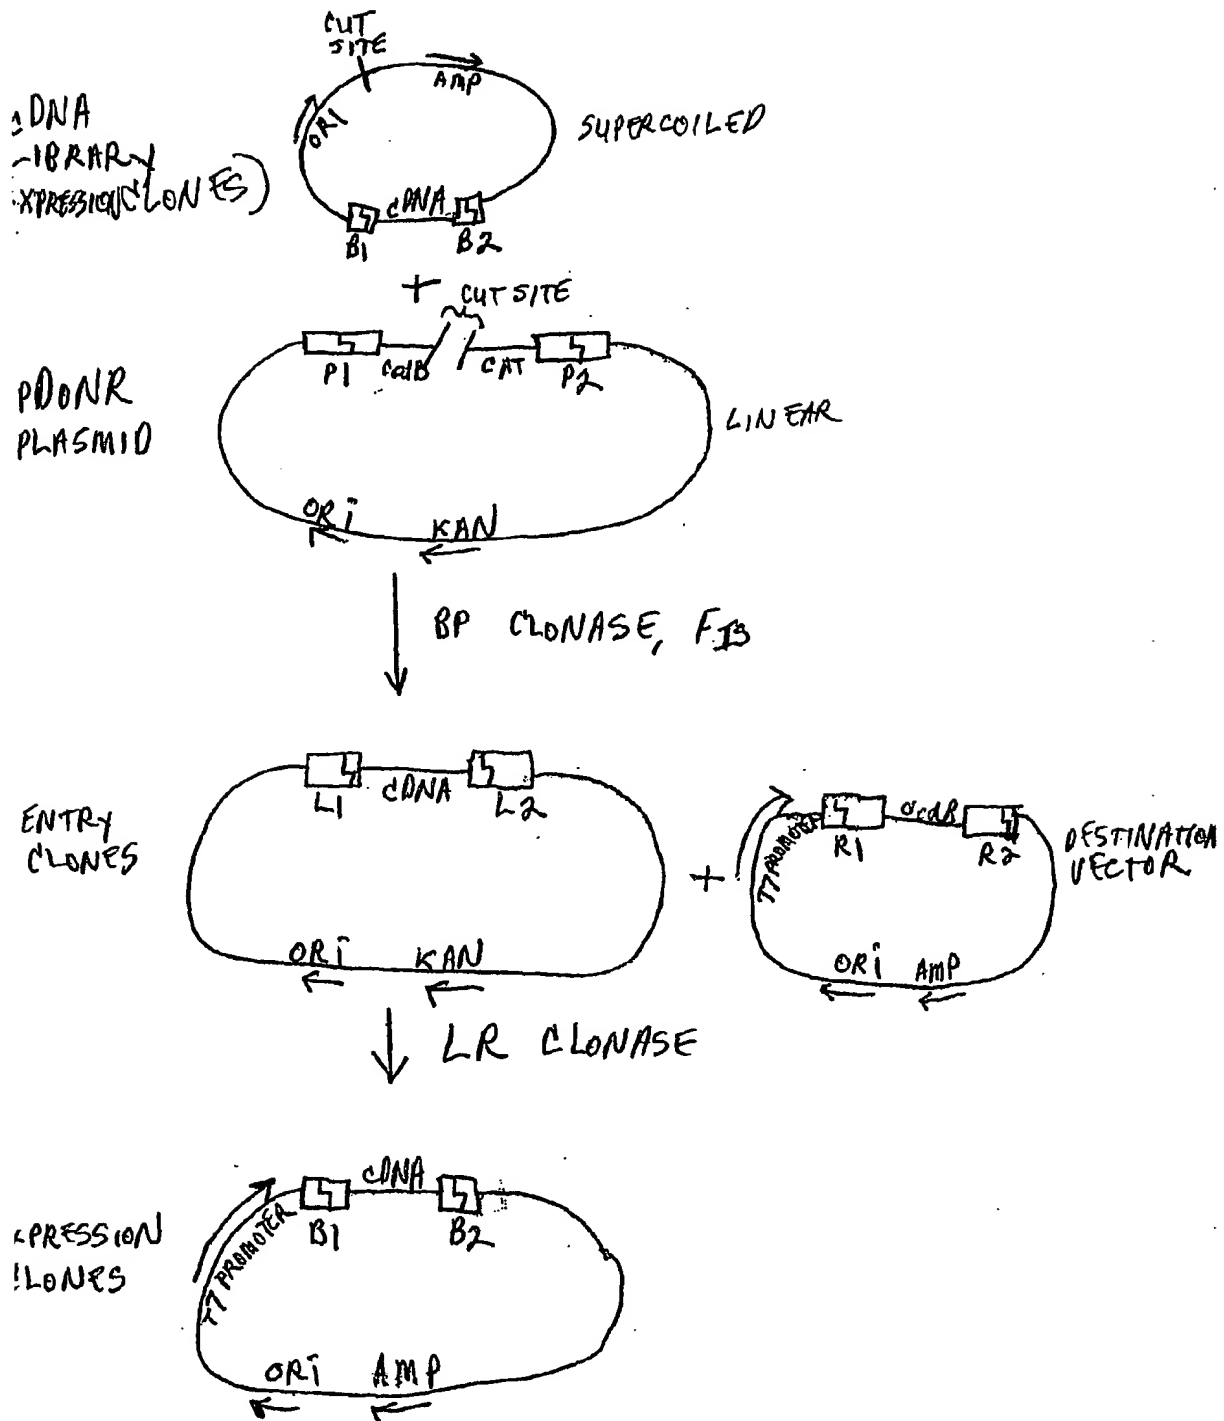 CUT
SITE
AMP
ORI
SUPERCOILED
DNA
IBRARY
XPRESSION CLONES)
cDNA
B1
B2
+
CUT SITE
P1
ccdB
CAT
P2
PDONR
PLASMID
LINEAR
ORi
KAN
BP CLONASE, FIS
L1
cDNA
L2
ENTRY
CLONES
ORi
KAN
+
T7 PROMOTER
R1
ccdB
R2
DESTINATION
VECTOR
ORi
AMP
LR CLONASE
cDNA
B1
B2
T7 PROMOTER
PRESSION
LONES
ORi
AMP